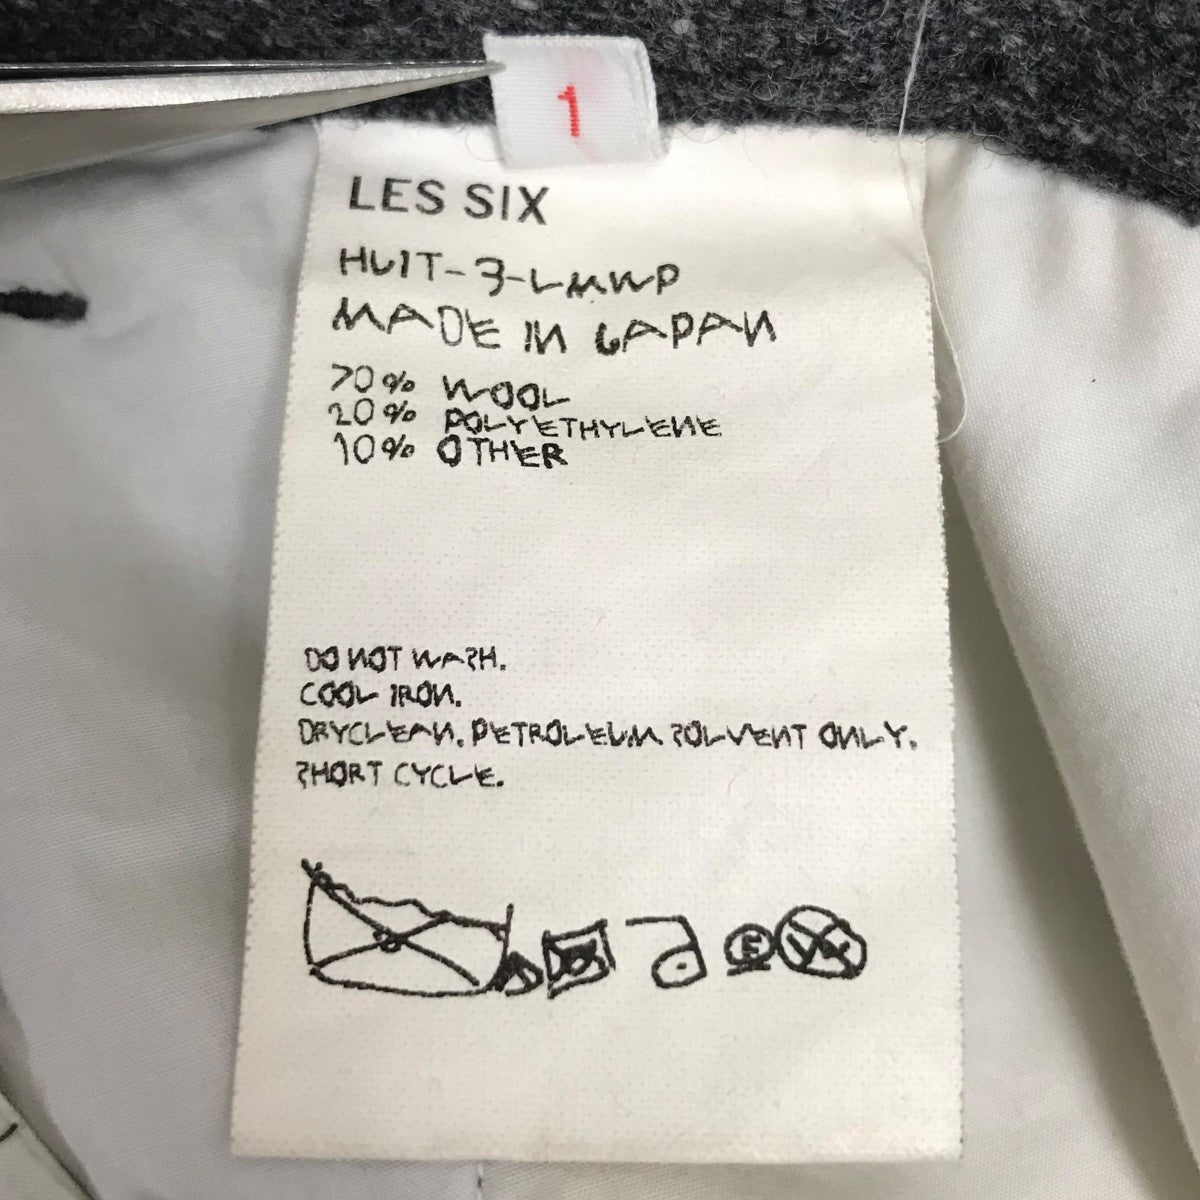 1
LES SIX
HUIT-3-LMWP
MADE IN JAPAN
70% WOOL
20% POLYETHYLENE
10% OTHER
DO NOT WASH.
COOL IRON.
DRYCLEAN. PETROLEUM SOLVENT ONLY.
SHORT CYCLE.
F